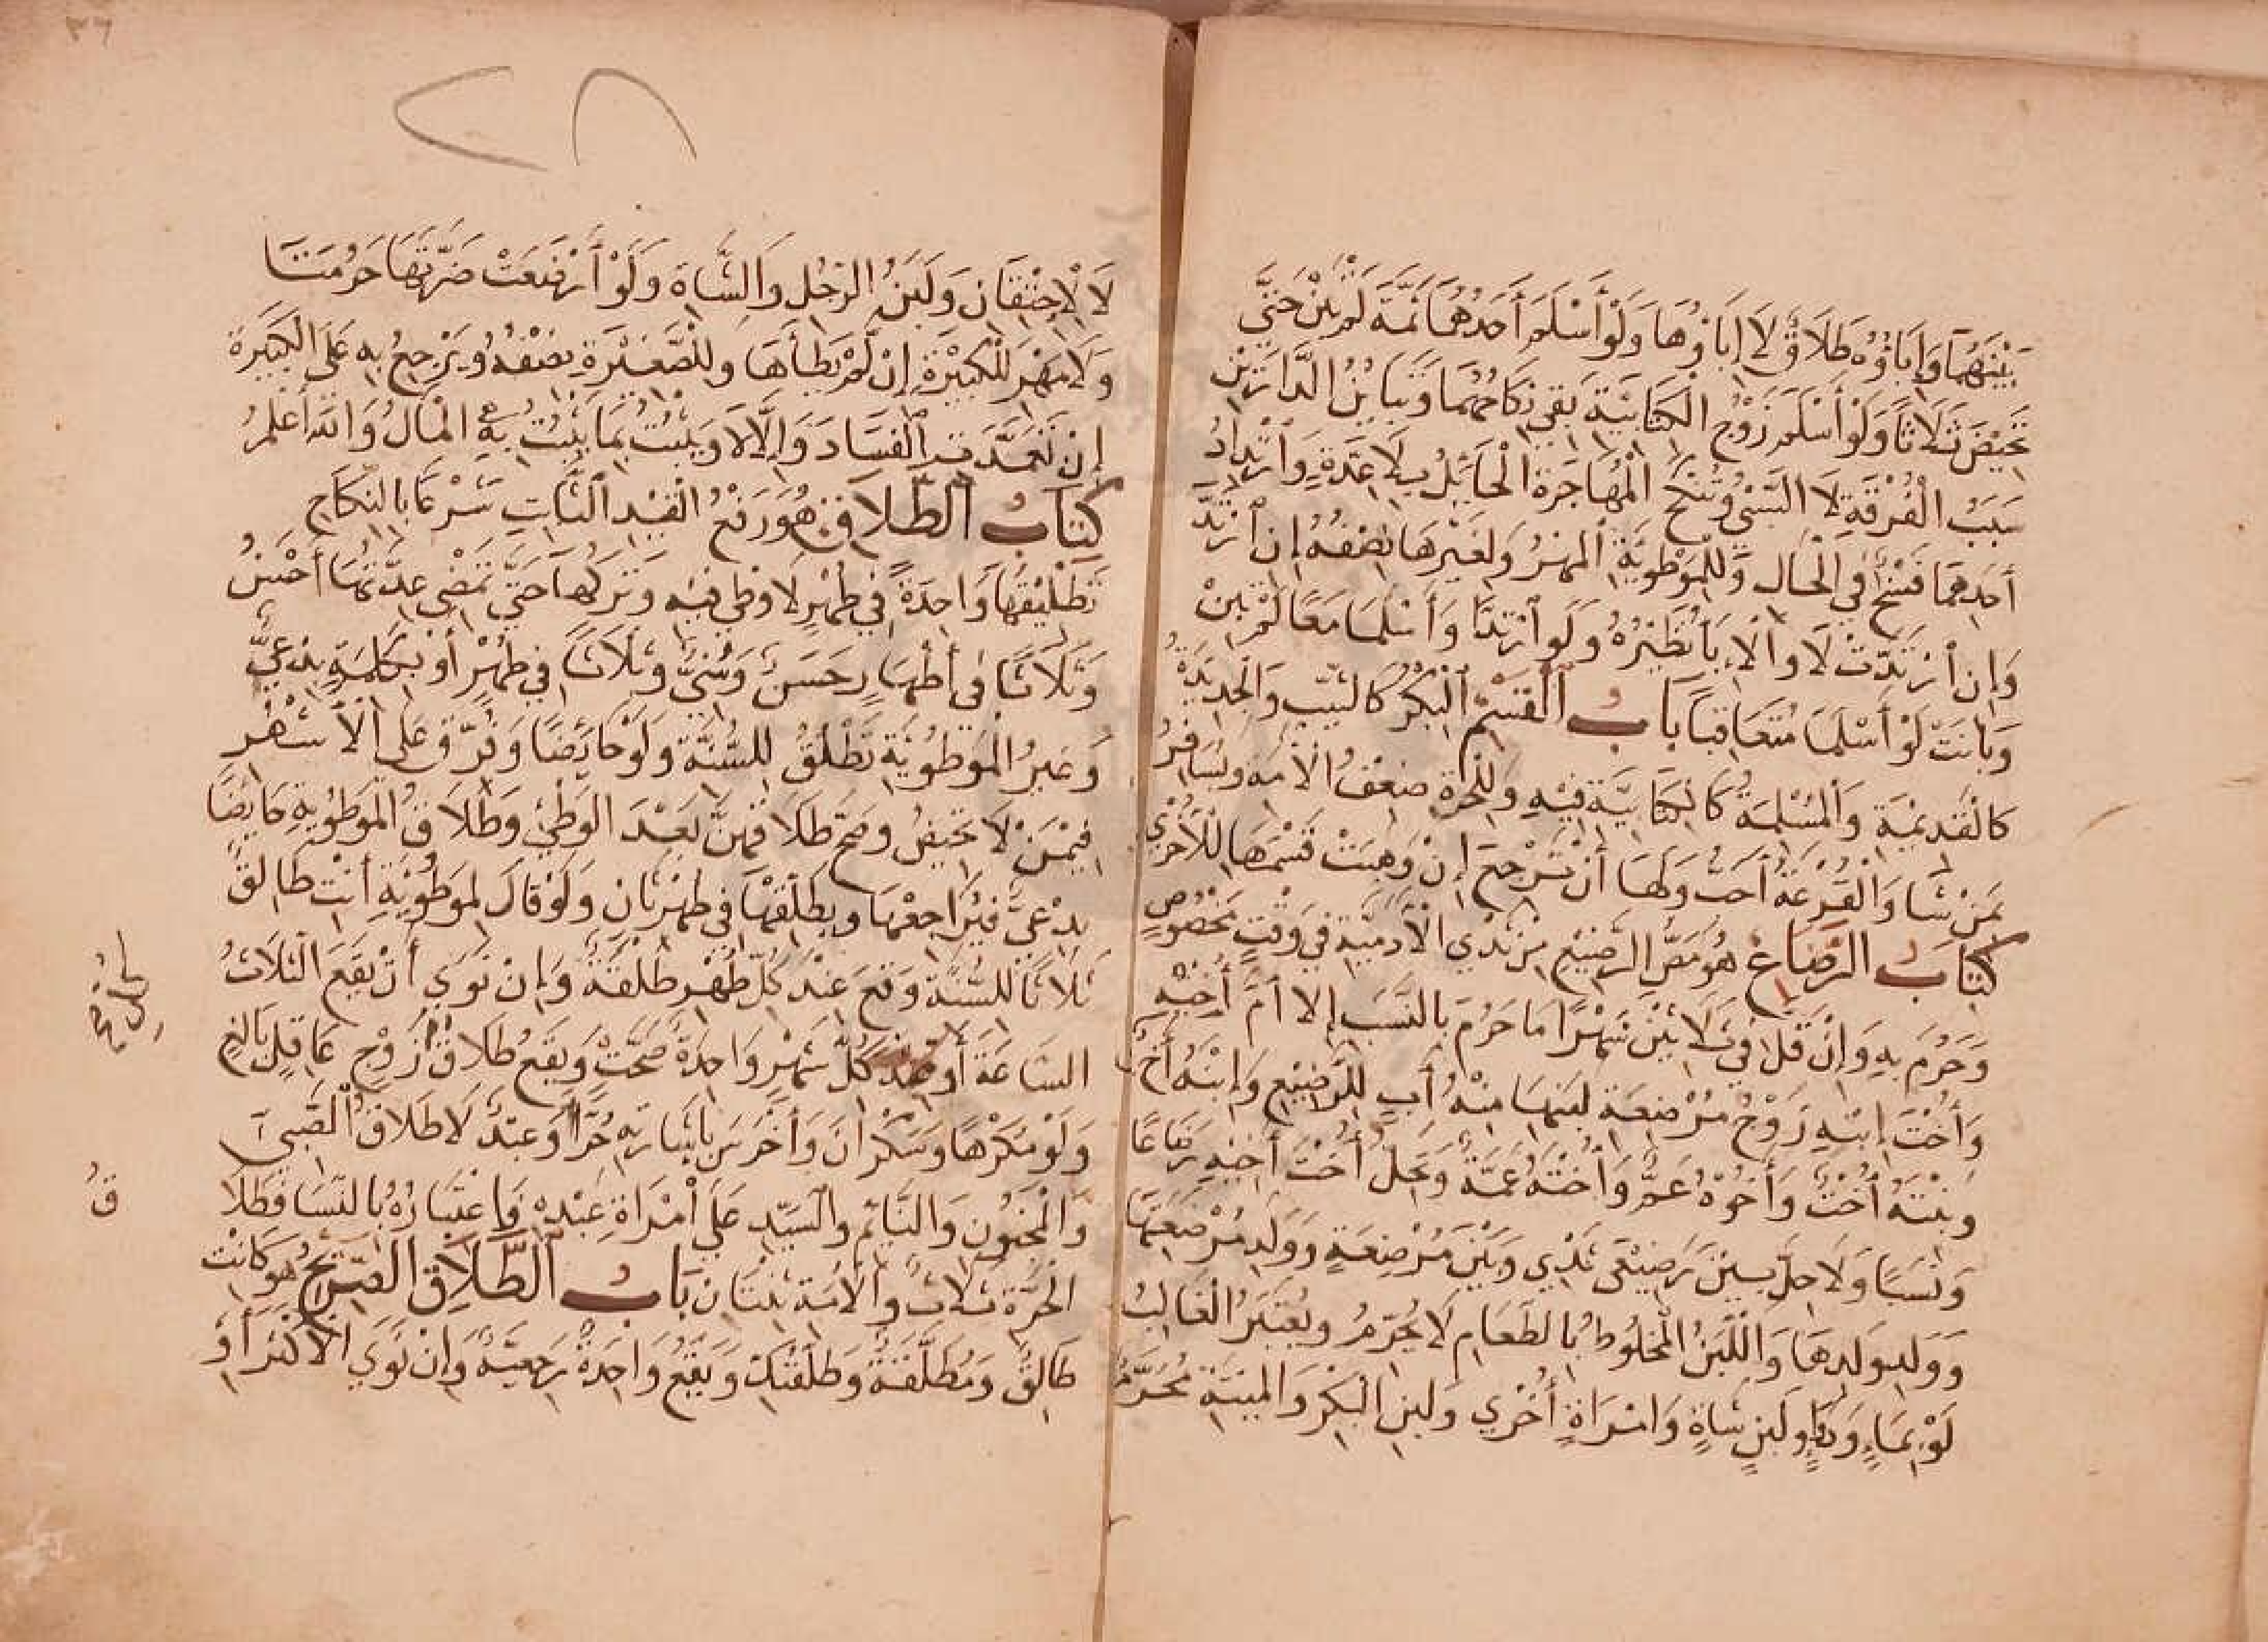 بَيْنَهُمَا وَإِبَاؤُهُ طَلَاقٌ لَا إِبَاؤُهَا وَلَوْ أَسْلَمَ أَحَدُهُمَا ثَمَّةَ لَمْ تَبِنْ حَتَّى
تَحِيْضَ ثَلَاثًا وَلَوْ أَسْلَمَ زَوْجُ الْكِتَابِيَّةِ بَقِيَ نِكَاحُهُمَا وَتَبَايُنُ الدَّارَيْنِ
سَبَبُ الْفُرْقَةِ لَا السَّبْيُ وَتُنْكَحُ الْمُهَاجِرَةُ الْحَائِلُ بِلَا عِدَّةٍ وَارْتِدَادُ
أَحَدِهِمَا فَسْخٌ فِي الْحَالِ وَلِلْمَوْطُوْءَةِ الْمَهْرُ وَلِغَيْرِهَا نِصْفُهُ إِنِ ارْتَدَّ
وَإِنِ ارْتَدَّتْ لَا وَالْإِبَاءُ نَظِيْرُهُ وَلَوِ ارْتَدَّا وَأَسْلَمَا مَعًا لَمْ تَبِنْ
وَبَانَتْ لَوْ أَسْلَمَا مُتَعَاقِبًا بَابُ الْقَسْمِ الْبِكْرُ كَالثَّيِّبِ وَالْجَدِيْدَةُ
كَالْقَدِيْمَةِ وَالْمُسْلِمَةُ كَالْكِتَابِيَّةِ فِيْهِ وَلِلْحُرَّةِ ضِعْفُ الْأَمَةِ وَيُسَافِرُ
بِمَنْ شَا وَالْقُرْعَةُ أَحَبُّ وَلَهَا أَنْ تَرْجِعَ إِنْ وَهَبَتْ قَسْمَهَا لِلْأُخْرَى
كِتَابُ الرَّضَاعِ هُوَ مَصُّ الرَّضِيْعِ مِنْ ثَدْيِ الْآدَمِيَّةِ فِي وَقْتٍ مَخْصُوْصٍ
وَحَرُمَ بِهِ وَإِنْ قَلَّ فِي ثَلَاثِيْنَ شَهْرًا مَا حَرُمَ بِالنَّسَبِ إِلَّا أُمَّ أَخِيْهِ
وَأُخْتَ ابْنِهِ زَوْجُ مُرْضِعَةٍ لَبَنُهَا مِنْهُ أَبٌ لِلرَّضِيْعِ وَابْنُهُ أَخٌ
وَبِنْتُهُ أُخْتٌ وَأَخُوْهُ عَمٌّ وَأُخْتُهُ عَمَّةٌ وَتَحِلُّ أُخْتُ أَخِيْهِ رَضَاعًا
وَنَسَبًا وَلَا حِلَّ بَيْنَ رَضِيْعَيْ ثَدْيٍ وَبَيْنَ مُرْضِعَةٍ وَوَلَدِ مُرْضِعَتِهَا
وَوَلَدِ وَلَدِهَا وَاللَّبَنُ الْمَخْلُوْطُ بِالطَّعَامِ لَا يُحَرِّمُ وَيُعْتَبَرُ الْغَالِبُ
لَوْ بِمَاءٍ وَدَوَاءٍ وَلَبَنِ شَاةٍ وَامْرَأَةٍ أُخْرَى وَلَبَنُ الْبِكْرِ وَالْمَيِّتَةِ مُحَرِّمٌ
لَا الْاِحْتِقَانُ وَلَبَنُ الرَّجُلِ وَالشَّاةِ وَلَوْ أَرْضَعَتْ ضَرَّتَهَا حَرُمَتَا
وَلَا مَهْرَ لِلْكَبِيْرَةِ إِنْ لَمْ يَطَأْهَا وَلِلصَّغِيْرَةِ نِصْفُهُ وَيَرْجِعُ بِهِ عَلَى الْكَبِيْرَةِ
إِنْ تَعَمَّدَتِ الْفَسَادَ وَإِلَّا لَا وَيَثْبُتُ بِمَا يَثْبُتُ بِهِ الْمَالُ وَاللّٰهُ أَعْلَمُ
كِتَابُ الطَّلَاقِ هُوَ رَفْعُ الْقَيْدِ الثَّابِتِ شَرْعًا بِالنِّكَاحِ
تَطْلِيْقُهَا وَاحِدَةً فِي طُهْرٍ لَا وَطْيَ فِيْهِ وَتَرْكُهَا حَتَّى تَمْضِيَ عِدَّتُهَا أَحْسَنُ
وَثَلَاثًا فِي أَطْهَارٍ حَسَنٌ وَسُنِّيٌّ وَثَلَاثًا فِي طُهْرٍ أَوْ بِكَلِمَةٍ بِدْعِيٌّ
وَغَيْرُ الْمَوْطُوْيَةِ تُطَلَّقُ لِلسُّنَّةِ وَلَوْ حَائِضًا وَفُرِّقَ عَلَى الْأَشْهُرِ
فِيْمَنْ لَا تَحِيْضُ وَصَحَّ طَلَاقُهُنَّ بَعْدَ الْوَطْيِ وَطَلَاقُ الْمَوْطُوْيَةِ حَائِضًا
بِدْعِيٌّ فَيُرَاجِعُهَا وَيُطَلِّقُهَا فِي طُهْرٍ ثَانٍ وَلَوْ قَالَ لِمَوْطُوْيَةٍ أَنْتِ طَالِقٌ
ثَلَاثًا لِلسُّنَّةِ وَقَعَ عِنْدَ كُلِّ طُهْرٍ طَلْقَةٌ وَإِنْ نَوَى أَنْ يَقَعَ الثَّلَاثُ
السَّاعَةَ أَوْ عِنْدَ كُلِّ شَهْرٍ وَاحِدَةٌ صَحَّتْ وَيَقَعُ طَلَاقُ زَوْجٍ عَاقِلٍ بَالِغٍ
وَلَوْ مُكْرَهًا وَسَكْرَانَ وَأَخْرَسَ بِإِشَارَتِهِ حُرًّا وَعَبْدًا لَا طَلَاقُ الصَّبِيِّ
وَالْمَجْنُوْنِ وَالنَّائِمِ وَالسَّيِّدِ عَلَى امْرَأَةِ عَبْدِهِ وَاعْتِبَارُهُ بِالنِّسَا فَطَلَا
قُ
الْحُرَّةِ ثَلَاثٌ وَالْأَمَةِ ثِنْتَانِ بَابُ الطَّلَاقِ الصَّرِيْحُ هُوَ كَأَنْتِ
طَالِقٌ وَمُطَلَّقَةٌ وَطَلَّقْتُكِ وَيَقَعُ وَاحِدَةٌ رَجْعِيَّةٌ وَإِنْ نَوَى الْأَكْثَرَ أَوِ